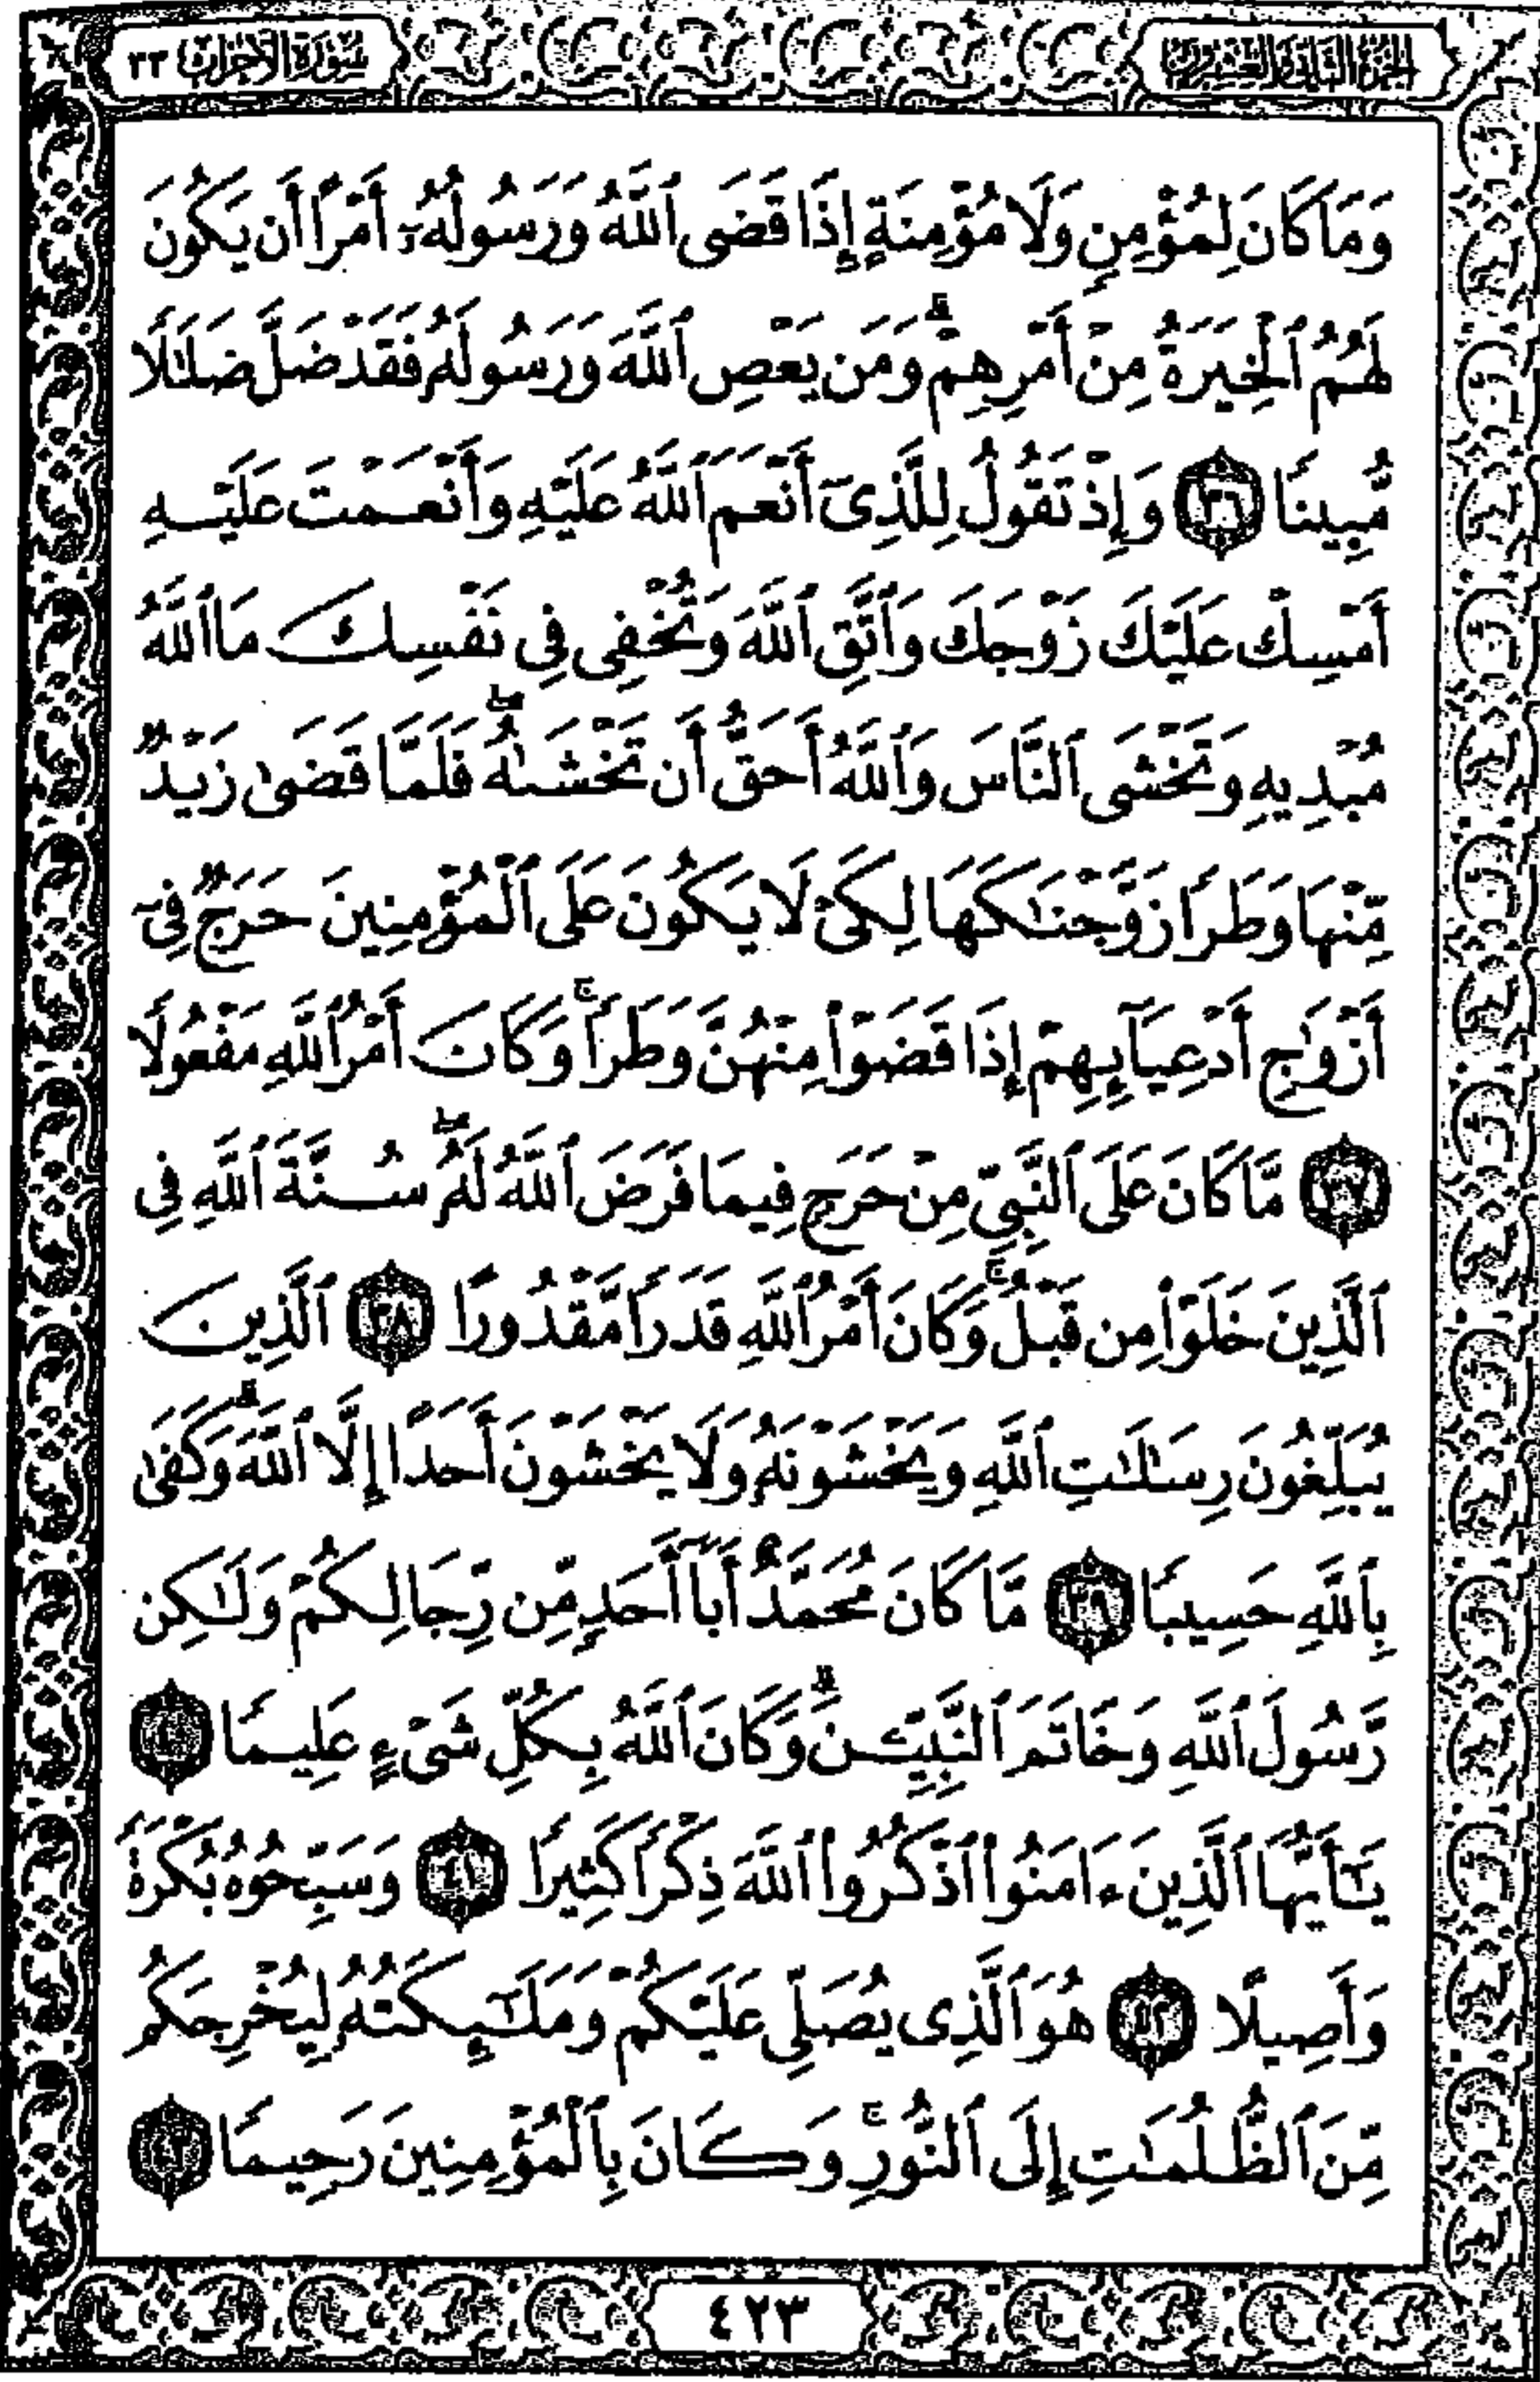 الجزء الثاني والعشرون
سورة الأحزاب ٣٣
وَمَا كَانَ لِمُؤْمِنٍ وَلَا مُؤْمِنَةٍ إِذَا قَضَى ٱللَّهُ وَرَسُولُهُۥٓ أَمْرًا أَن يَكُونَ
لَهُمُ ٱلْخِيَرَةُ مِنْ أَمْرِهِمْ ۗ وَمَن يَعْصِ ٱللَّهَ وَرَسُولَهُۥ فَقَدْ ضَلَّ ضَلَٰلًا
مُّبِينًا ٣٦ وَإِذْ تَقُولُ لِلَّذِىٓ أَنْعَمَ ٱللَّهُ عَلَيْهِ وَأَنْعَمْتَ عَلَيْهِ
أَمْسِكْ عَلَيْكَ زَوْجَكَ وَٱتَّقِ ٱللَّهَ وَتُخْفِى فِى نَفْسِكَ مَا ٱللَّهُ
مُبْدِيهِ وَتَخْشَى ٱلنَّاسَ وَٱللَّهُ أَحَقُّ أَن تَخْشَىٰهُ ۖ فَلَمَّا قَضَىٰ زَيْدٌ
مِّنْهَا وَطَرًا زَوَّجْنَٰكَهَا لِكَىْ لَا يَكُونَ عَلَى ٱلْمُؤْمِنِينَ حَرَجٌ فِىٓ
أَزْوَٰجِ أَدْعِيَآئِهِمْ إِذَا قَضَوْا۟ مِنْهُنَّ وَطَرًا ۚ وَكَانَ أَمْرُ ٱللَّهِ مَفْعُولًا
٣٧ مَّا كَانَ عَلَى ٱلنَّبِىِّ مِنْ حَرَجٍ فِيمَا فَرَضَ ٱللَّهُ لَهُۥ ۖ سُنَّةَ ٱللَّهِ فِى
ٱلَّذِينَ خَلَوْا۟ مِن قَبْلُ ۚ وَكَانَ أَمْرُ ٱللَّهِ قَدَرًا مَّقْدُورًا ٣٨ ٱلَّذِينَ
يُبَلِّغُونَ رِسَٰلَٰتِ ٱللَّهِ وَيَخْشَوْنَهُۥ وَلَا يَخْشَوْنَ أَحَدًا إِلَّا ٱللَّهَ ۗ وَكَفَىٰ
بِٱللَّهِ حَسِيبًا ٣٩ مَّا كَانَ مُحَمَّدٌ أَبَآ أَحَدٍ مِّن رِّجَالِكُمْ وَلَٰكِن
رَّسُولَ ٱللَّهِ وَخَاتَمَ ٱلنَّبِيِّۦنَ ۗ وَكَانَ ٱللَّهُ بِكُلِّ شَىْءٍ عَلِيمًا ٤٠
يَٰٓأَيُّهَا ٱلَّذِينَ ءَامَنُوا۟ ٱذْكُرُوا۟ ٱللَّهَ ذِكْرًا كَثِيرًا ٤١ وَسَبِّحُوهُ بُكْرَةً
وَأَصِيلًا ٤٢ هُوَ ٱلَّذِى يُصَلِّى عَلَيْكُمْ وَمَلَٰٓئِكَتُهُۥ لِيُخْرِجَكُم
مِّنَ ٱلظُّلُمَٰتِ إِلَى ٱلنُّورِ ۚ وَكَانَ بِٱلْمُؤْمِنِينَ رَحِيمًا ٤٣
٤٢٣